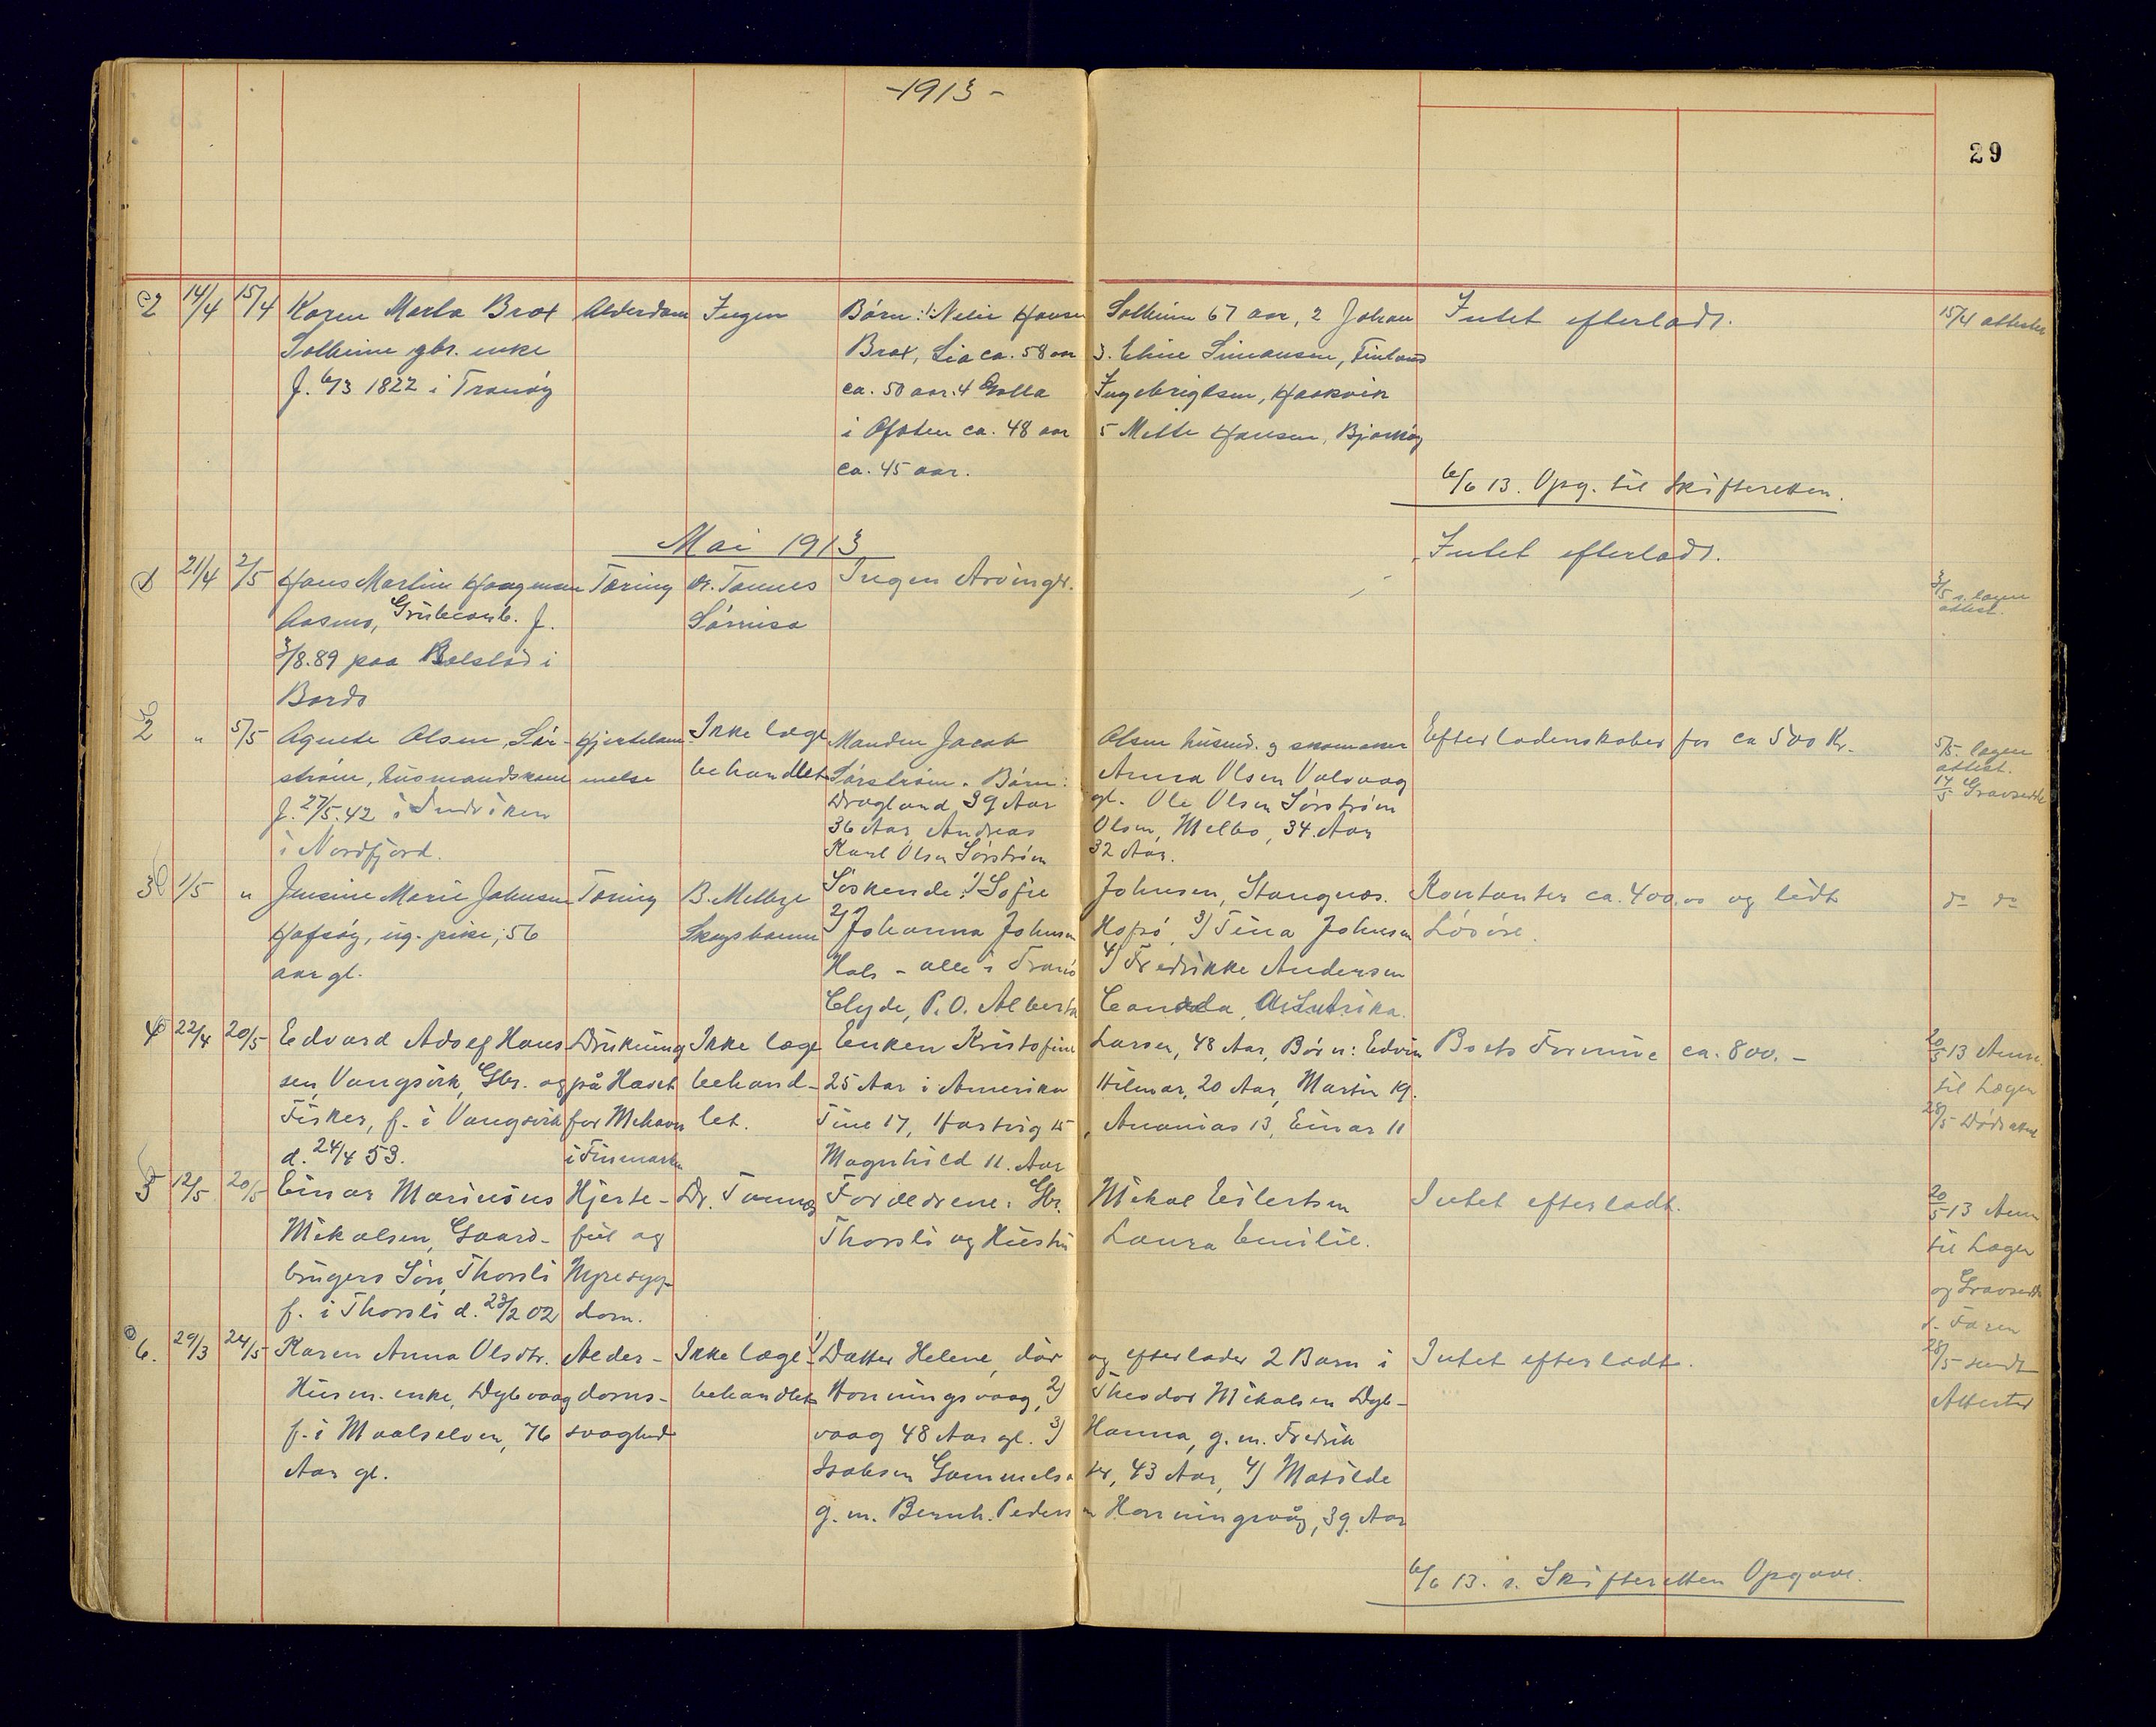 -1913-
29
2 14/4 15/4 Karen Marta Brox Alderdom Ingen Børn: 1. Hansen Solheim 67 aar, 2 Johan Intet efterladt. 15/4 attester
Solheim gbr. enke Brox, Lia ca. 58 aar 3. Eline Simonsen, Finland
f. 6/3 1822 i Tranöy ca. 50 aar. 4 Ingebrigtsen, Haakvik
i Ofoten ca. 48 aar 5 Mette Hansen, Bjarköy
ca. 45 aar.
6/6 13. Opg. til Skifteretten.
Mai 1913
Intet efterladt.
1 21/4 2/5 Hans Martin Haagensen Tæring Dr. Tønnes Ingen Arvinger. 3/5 s. lægen
Aasmo, Grubearb. f. Sørreisa attest.
3/8.89 paa i
Bardo
2 " 5/5 Agnete Olsen, Sör- Hjertelam- Ikke læge Manden Jacob Olsen husmd. og skomaker Efterladenskaber for ca 500 Kr. 5/5 lægen
ström, husmandskone melse behandlet Sörström. Børn: Anna Olsen Valvaag attest.
f. 27/5.42 i Indviken Drogland 39 Aar gl. Ole Olsen Sörström 14/5 Gravseddel
36 Aar, Andreas Olsen, Melbo, 34 Aar
i Nordfjord. Karl Olsen Sörström 32 Aar.
3 1/5 " Jensine Marie Johnsen Tæring B. Melbye Söskende: 1) Sofie Johnsen, Stangnæs. Kontanter ca. 400.00 og lidt do do
Hofsöy, ug. pike, 56 Skogshavn 2) Johanna Johnsen Hofsö, 3) Tina Johnsen Lösöre.
aar gl. Hals - alle i Tranö 4) Fredrikke Andersen
Clyde, P.O. Alberta Canada,
4 22/4 20/5 Edvard Adolf Han- Drukning Ikke læge Enken Kristofine Larsen, 48 Aar, Börn: Edvin Boets Formue ca. 800.- 20/5 13 Anm.
sen, Vangsvik, Gbr. og på Havet behand- 25 Aar i Amerika Hilmar, 20 Aar, Martin 19. til Lægen
Fisker, f. i Vangsvik for Mehavn let. Tine 17, Hartvig 15, Ananias 13, Einar 11 28/5 Dödsattest
d. 24/4 53. i Finmarken Magnhild 11. Aar
5 12/5 20/5 Einar Marinius Hjerte- Dr. Tønnes Forældrene: Gbr. Mikal Eilertsen Intet efterladt. 20/5 13 Anm
Mikalsen, Gaard- feil og Thorsli og Hustru Laura Emilie. til Lægen
brugers Sön, Thorsli Nyresyg- og Gravseddel
f. i Thorsli d. 23/2 02 dom. s. Faren
6. 29/3 24/5 Karen Anna Olsdtr. Alder- Ikke læge- 1) Datter Helene, död og efterlader 2 Barn i Intet efterladt. 28/5 sendt
Husm. enke, Dybvaag doms- behandlet Honningsvaag, 2) Theodor Mikalsen Dyb- Attester
f. i Maalselven, 76 svaghed vaag 48 Aar gl. 3) Hanna, g. m. Fredrik
Aar gl. Isaksen 43 Aar, 4) Matilde
g. m. Bernh. Pedersen Honningsvåg, 39 Aar
6/6 13. s. Skifteretten Opgave.